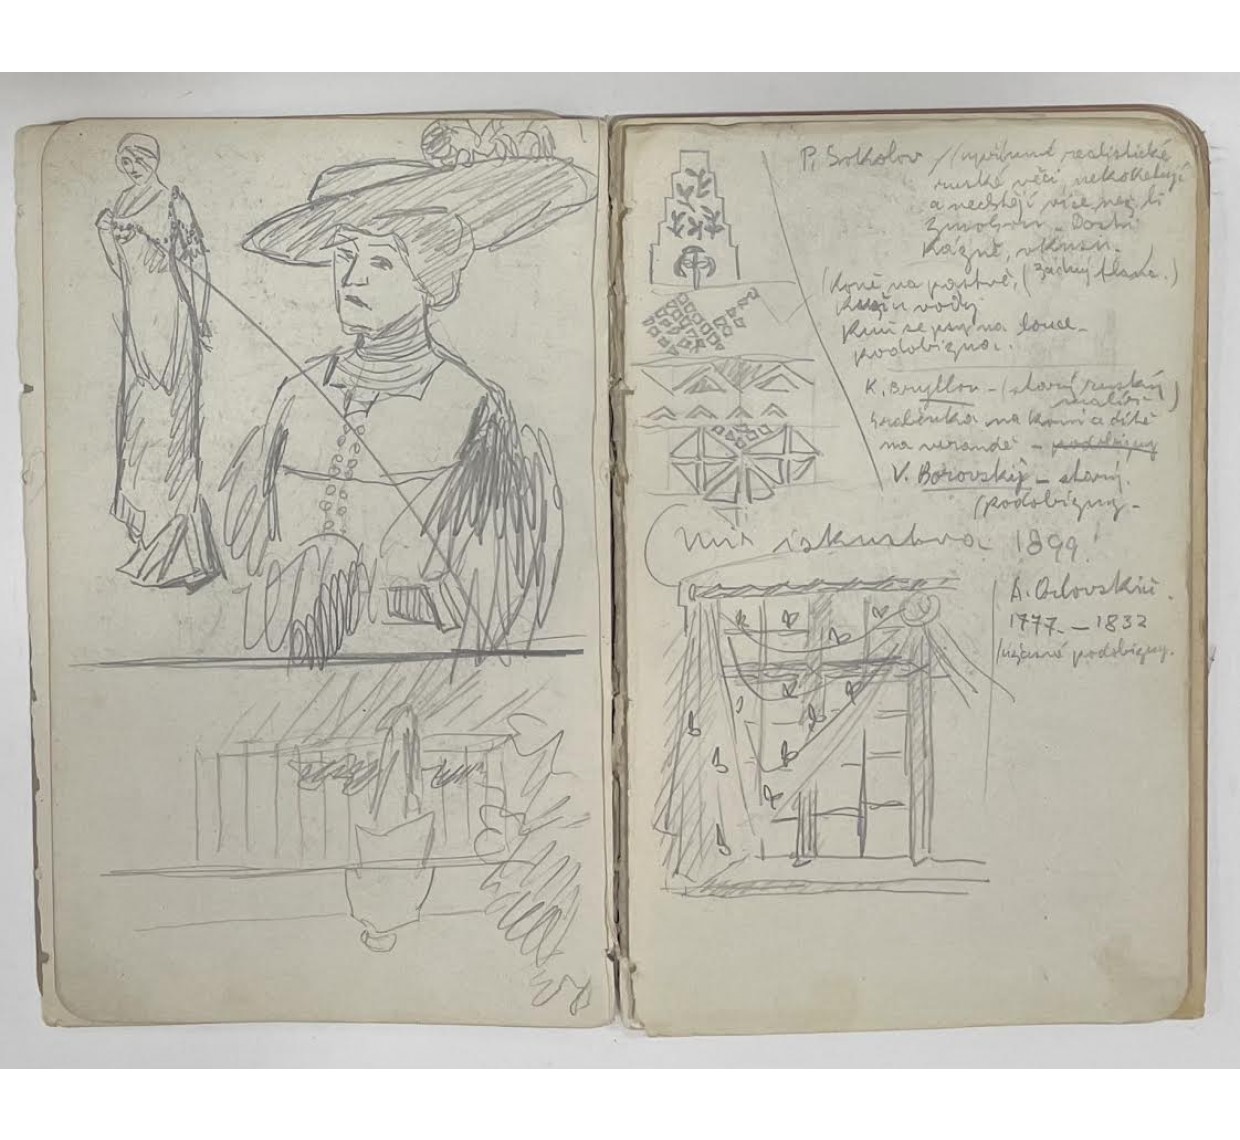 P. Sokolov / upřímné realistické
ruské věci nekoketují
a nechtějí více než li
zmohou. Dosti
kázně, vkusu.
(Koně na pastvě, (žádný flanc.)
u vody
psy na louce -
podobizna.
K. Bryllov - (starý ruský
malíř)
na koni a dítě
na verandě - podobizny
V. Borovskij - starý.
/podobizny -
Mir iskustva 1899
A. Orlovskij.
1777. - 1832
/ podobizny.